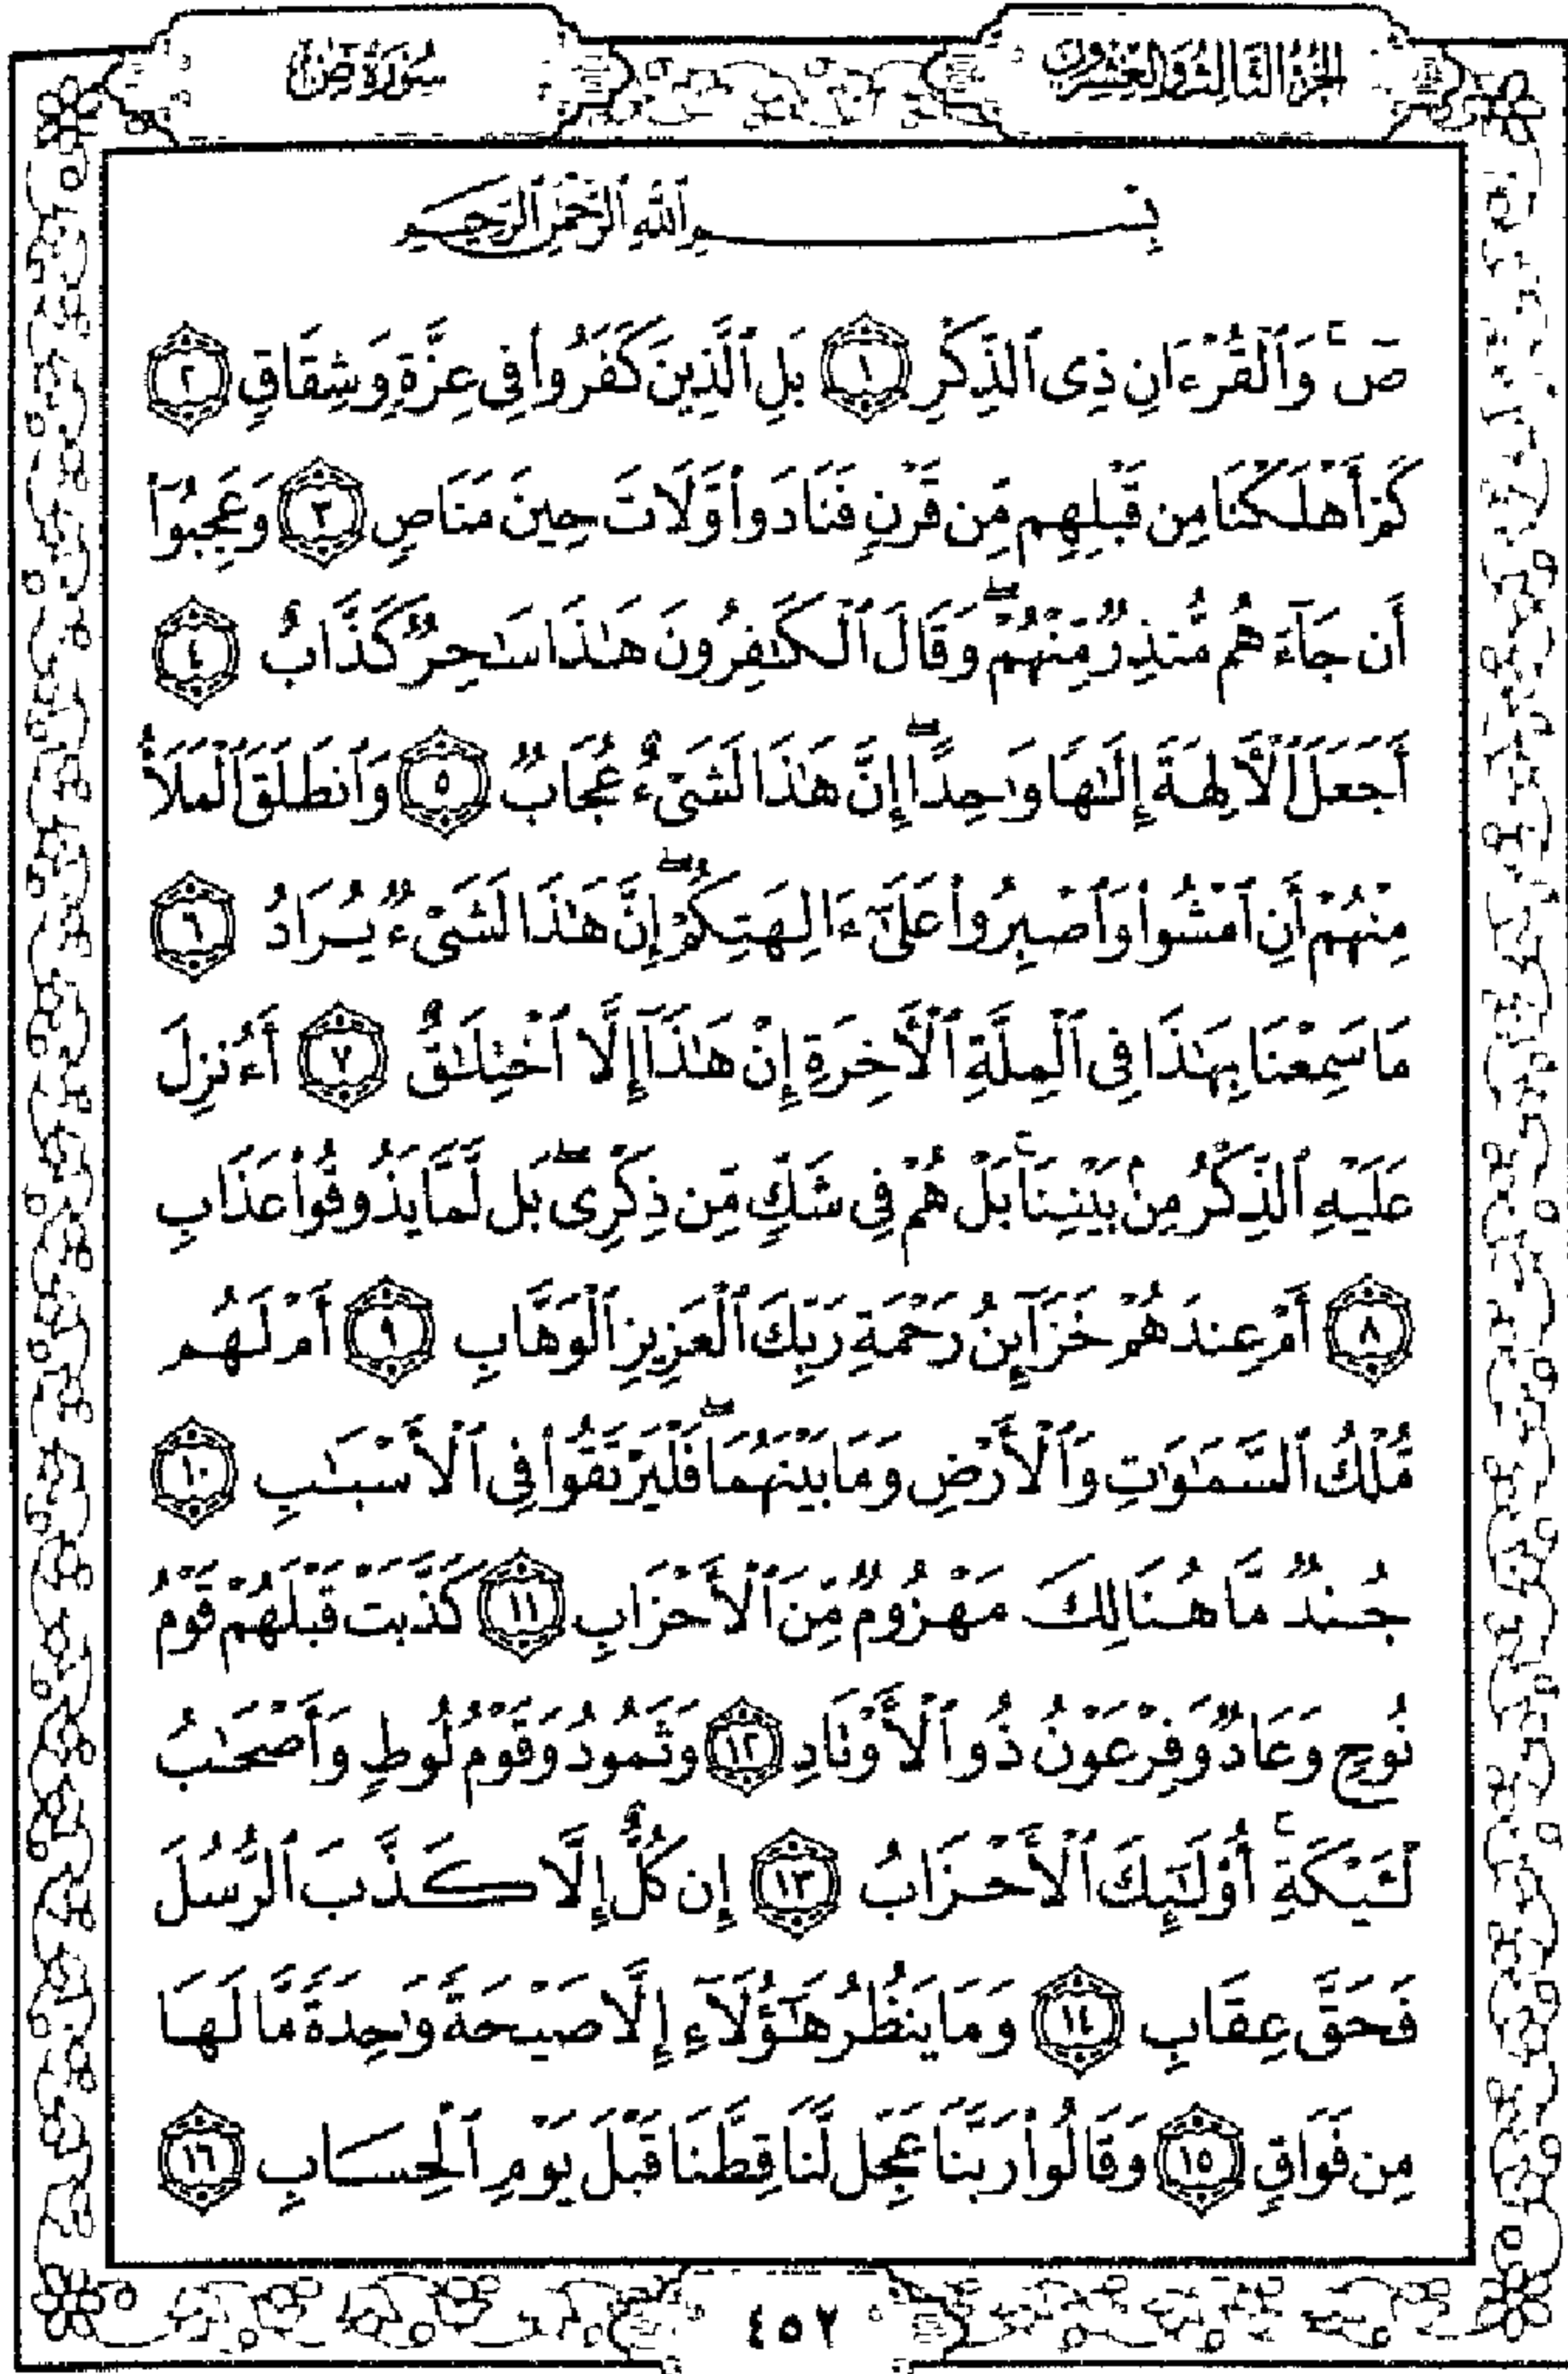 الجُزْءُ الثَّالِثُ وَالعِشْرُونَ
سُورَةُ صٓ
بِسْمِ ٱللَّهِ ٱلرَّحْمَٰنِ ٱلرَّحِيمِ
صٓۚ وَٱلْقُرْءَانِ ذِى ٱلذِّكْرِ ١ بَلِ ٱلَّذِينَ كَفَرُوا۟ فِى عِزَّةٍ وَشِقَاقٍ ٢
كَمْ أَهْلَكْنَا مِن قَبْلِهِم مِّن قَرْنٍ فَنَادَوا۟ وَّلَاتَ حِينَ مَنَاصٍ ٣ وَعَجِبُوٓا۟
أَن جَآءَهُم مُّنذِرٌ مِّنْهُمْۖ وَقَالَ ٱلْكَٰفِرُونَ هَٰذَا سَٰحِرٌ كَذَّابٌ ٤
أَجَعَلَ ٱلْأَلِهَةَ إِلَٰهًا وَٰحِدًاۖ إِنَّ هَٰذَا لَشَىْءٌ عُجَابٌ ٥ وَٱنطَلَقَ ٱلْمَلَأُ
مِنْهُمْ أَنِ ٱمْشُوا۟ وَٱصْبِرُوا۟ عَلَىٰٓ ءَالِهَتِكُمْۖ إِنَّ هَٰذَا لَشَىْءٌ يُرَادُ ٦
مَا سَمِعْنَا بِهَٰذَا فِى ٱلْمِلَّةِ ٱلْأَخِرَةِ إِنْ هَٰذَآ إِلَّا ٱخْتِلَٰقٌ ٧ أَءُنزِلَ
عَلَيْهِ ٱلذِّكْرُ مِنۢ بَيْنِنَاۚ بَلْ هُمْ فِى شَكٍّ مِّن ذِكْرِىۖ بَل لَّمَّا يَذُوقُوا۟ عَذَابِ
٨ أَمْ عِندَهُمْ خَزَآئِنُ رَحْمَةِ رَبِّكَ ٱلْعَزِيزِ ٱلْوَهَّابِ ٩ أَمْ لَهُم
مُّلْكُ ٱلسَّمَٰوَٰتِ وَٱلْأَرْضِ وَمَا بَيْنَهُمَاۖ فَلْيَرْتَقُوا۟ فِى ٱلْأَسْبَٰبِ ١٠
جُندٌ مَّا هُنَالِكَ مَهْزُومٌ مِّنَ ٱلْأَحْزَابِ ١١ كَذَّبَتْ قَبْلَهُمْ قَوْمُ
نُوحٍ وَعَادٌ وَفِرْعَوْنُ ذُو ٱلْأَوْتَادِ ١٢ وَثَمُودُ وَقَوْمُ لُوطٍ وَأَصْحَٰبُ
لْـَٔيْكَةِۚ أُو۟لَٰٓئِكَ ٱلْأَحْزَابُ ١٣ إِن كُلٌّ إِلَّا كَذَّبَ ٱلرُّسُلَ
فَحَقَّ عِقَابِ ١٤ وَمَا يَنظُرُ هَٰٓؤُلَآءِ إِلَّا صَيْحَةً وَٰحِدَةً مَّا لَهَا
مِن فَوَاقٍ ١٥ وَقَالُوا۟ رَبَّنَا عَجِّل لَّنَا قِطَّنَا قَبْلَ يَوْمِ ٱلْحِسَابِ ١٦
٤٥٢